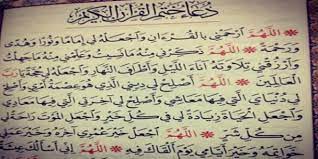 دُعَاءُ خَتْمِ الْقُرْآنِ الْكَرِيمِ
اللَّهُمَّ ارْحَمْنِي بِالْقُرْءَانِ وَاجْعَلْهُ لِي إِمَامًا وَنُورًا وَهُدًى
وَرَحْمَةً اللَّهُمَّ ذَكِّرْنِي مِنْهُ مَا نَسِيتُ وَعَلِّمْنِي مِنْهُ مَا جَهِلْتُ
وَارْزُقْنِي تِلَاوَتَهُ آنَاءَ اللَّيْلِ وَأَطْرَافَ النَّهَارِ وَاجْعَلْهُ لِي حُجَّةً يَا رَبَّ
الْعَالَمِينَ اللَّهُمَّ أَصْلِحْ لِي دِينِي الَّذِي هُوَ عِصْمَةُ أَمْرِي وَأَصْلِحْ
لِي دُنْيَايَ الَّتِي فِيهَا مَعَاشِي وَأَصْلِحْ لِي آخِرَتِي الَّتِي فِيهَا مَعَادِي
وَاجْعَلِ الْحَيَاةَ زِيَادَةً لِي فِي كُلِّ خَيْرٍ وَاجْعَلِ الْمَوْتَ رَاحَةً لِي
مِنْ كُلِّ شَرٍّ اللَّهُمَّ اجْعَلْ خَيْرَ عُمْرِي آخِرَهُ وَخَيْرَ عَمَلِي
خَوَاتِمَهُ وَخَيْرَ أَيَّامِي يَوْمَ أَلْقَاكَ فِيهِ اللَّهُمَّ إِنِّي أَسْأَلُكَ عِيشَةً